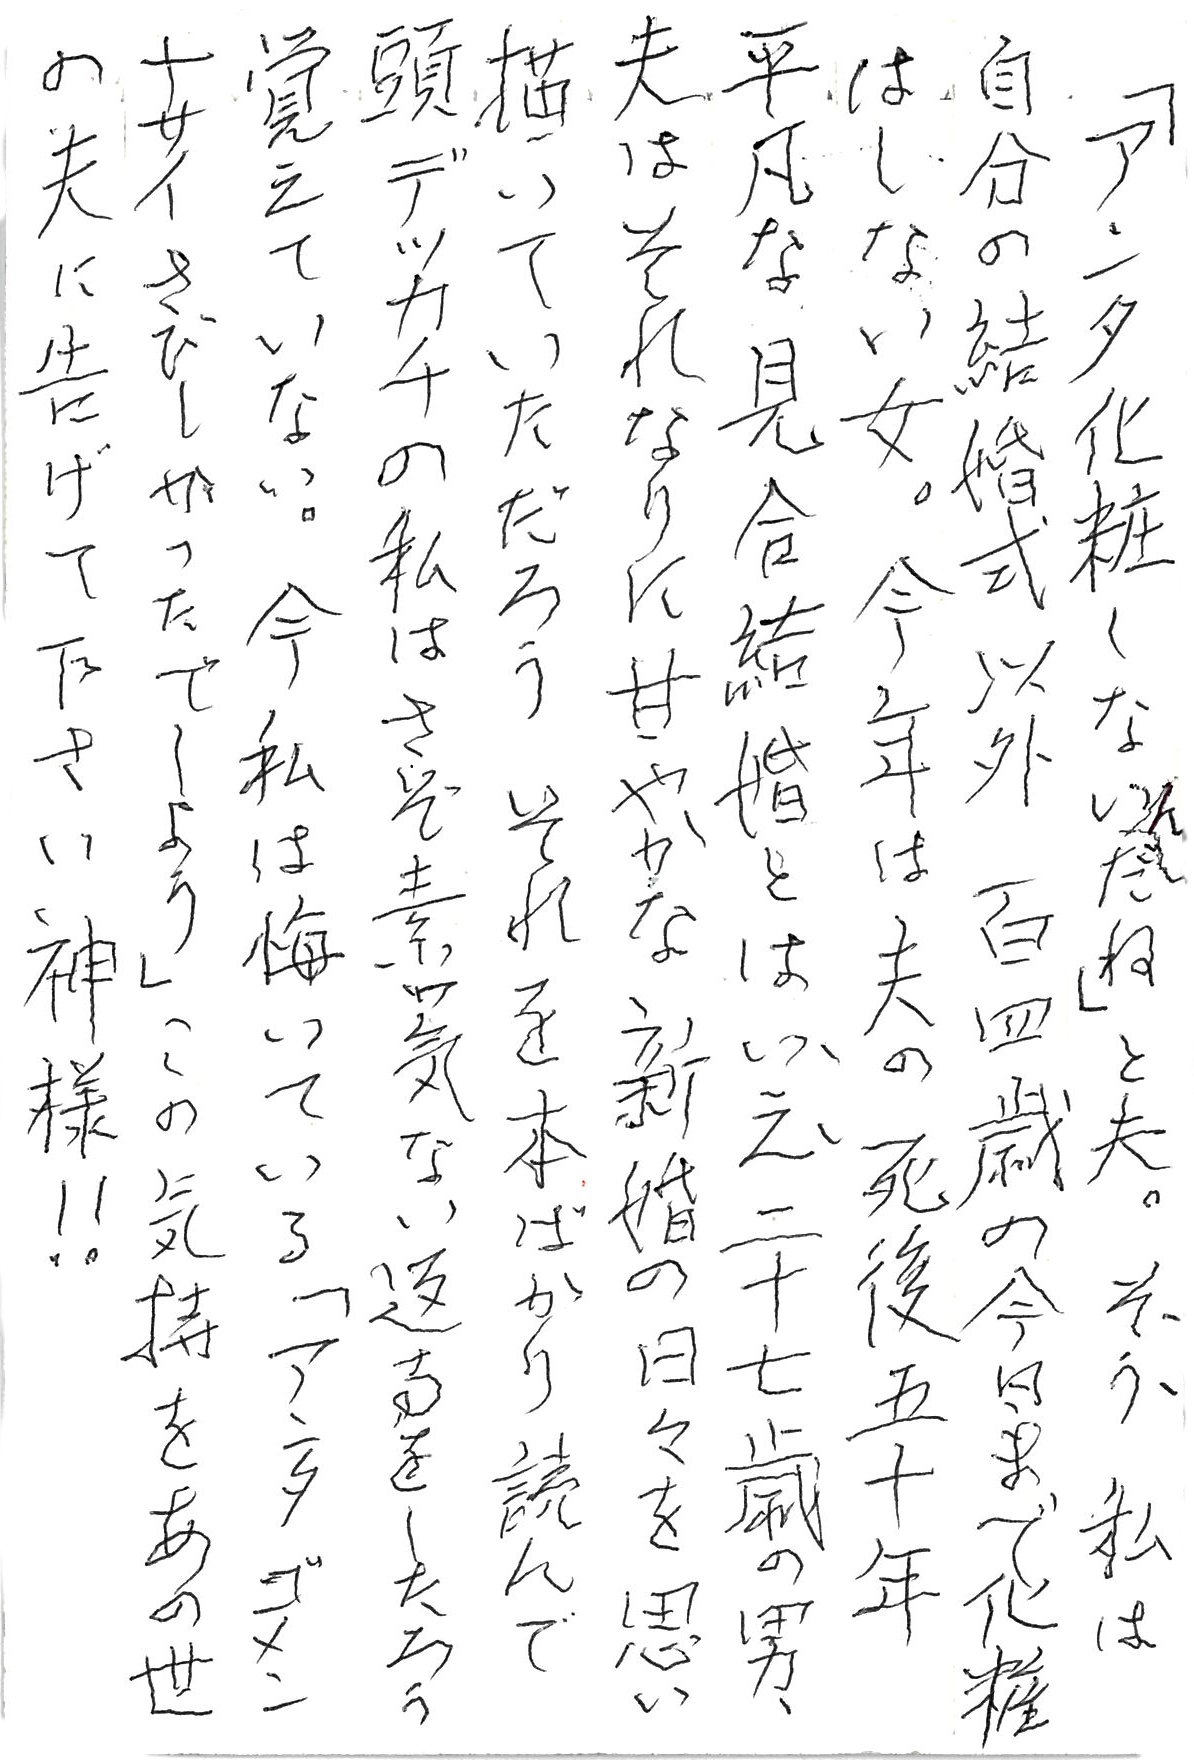 「アンタ化粧しないんだね」と夫。そう、私は
自分の結婚式以外 百四歳の今日まで化粧
はしない女。今年は夫の死後五十年
平凡な見合結婚とはいえ、二十七歳の男、
夫はそれなりに甘やかな新婚の日々を思い
描いていただろう それを本ばかり読んで
頭デッカチの私はさぞ素気ない返事をしたろう
覚えていない。今私は悔いている「アンタゴメン
ナサイさびしかったでしょう」この気持をあの世
の夫に告げて下さい神様!!